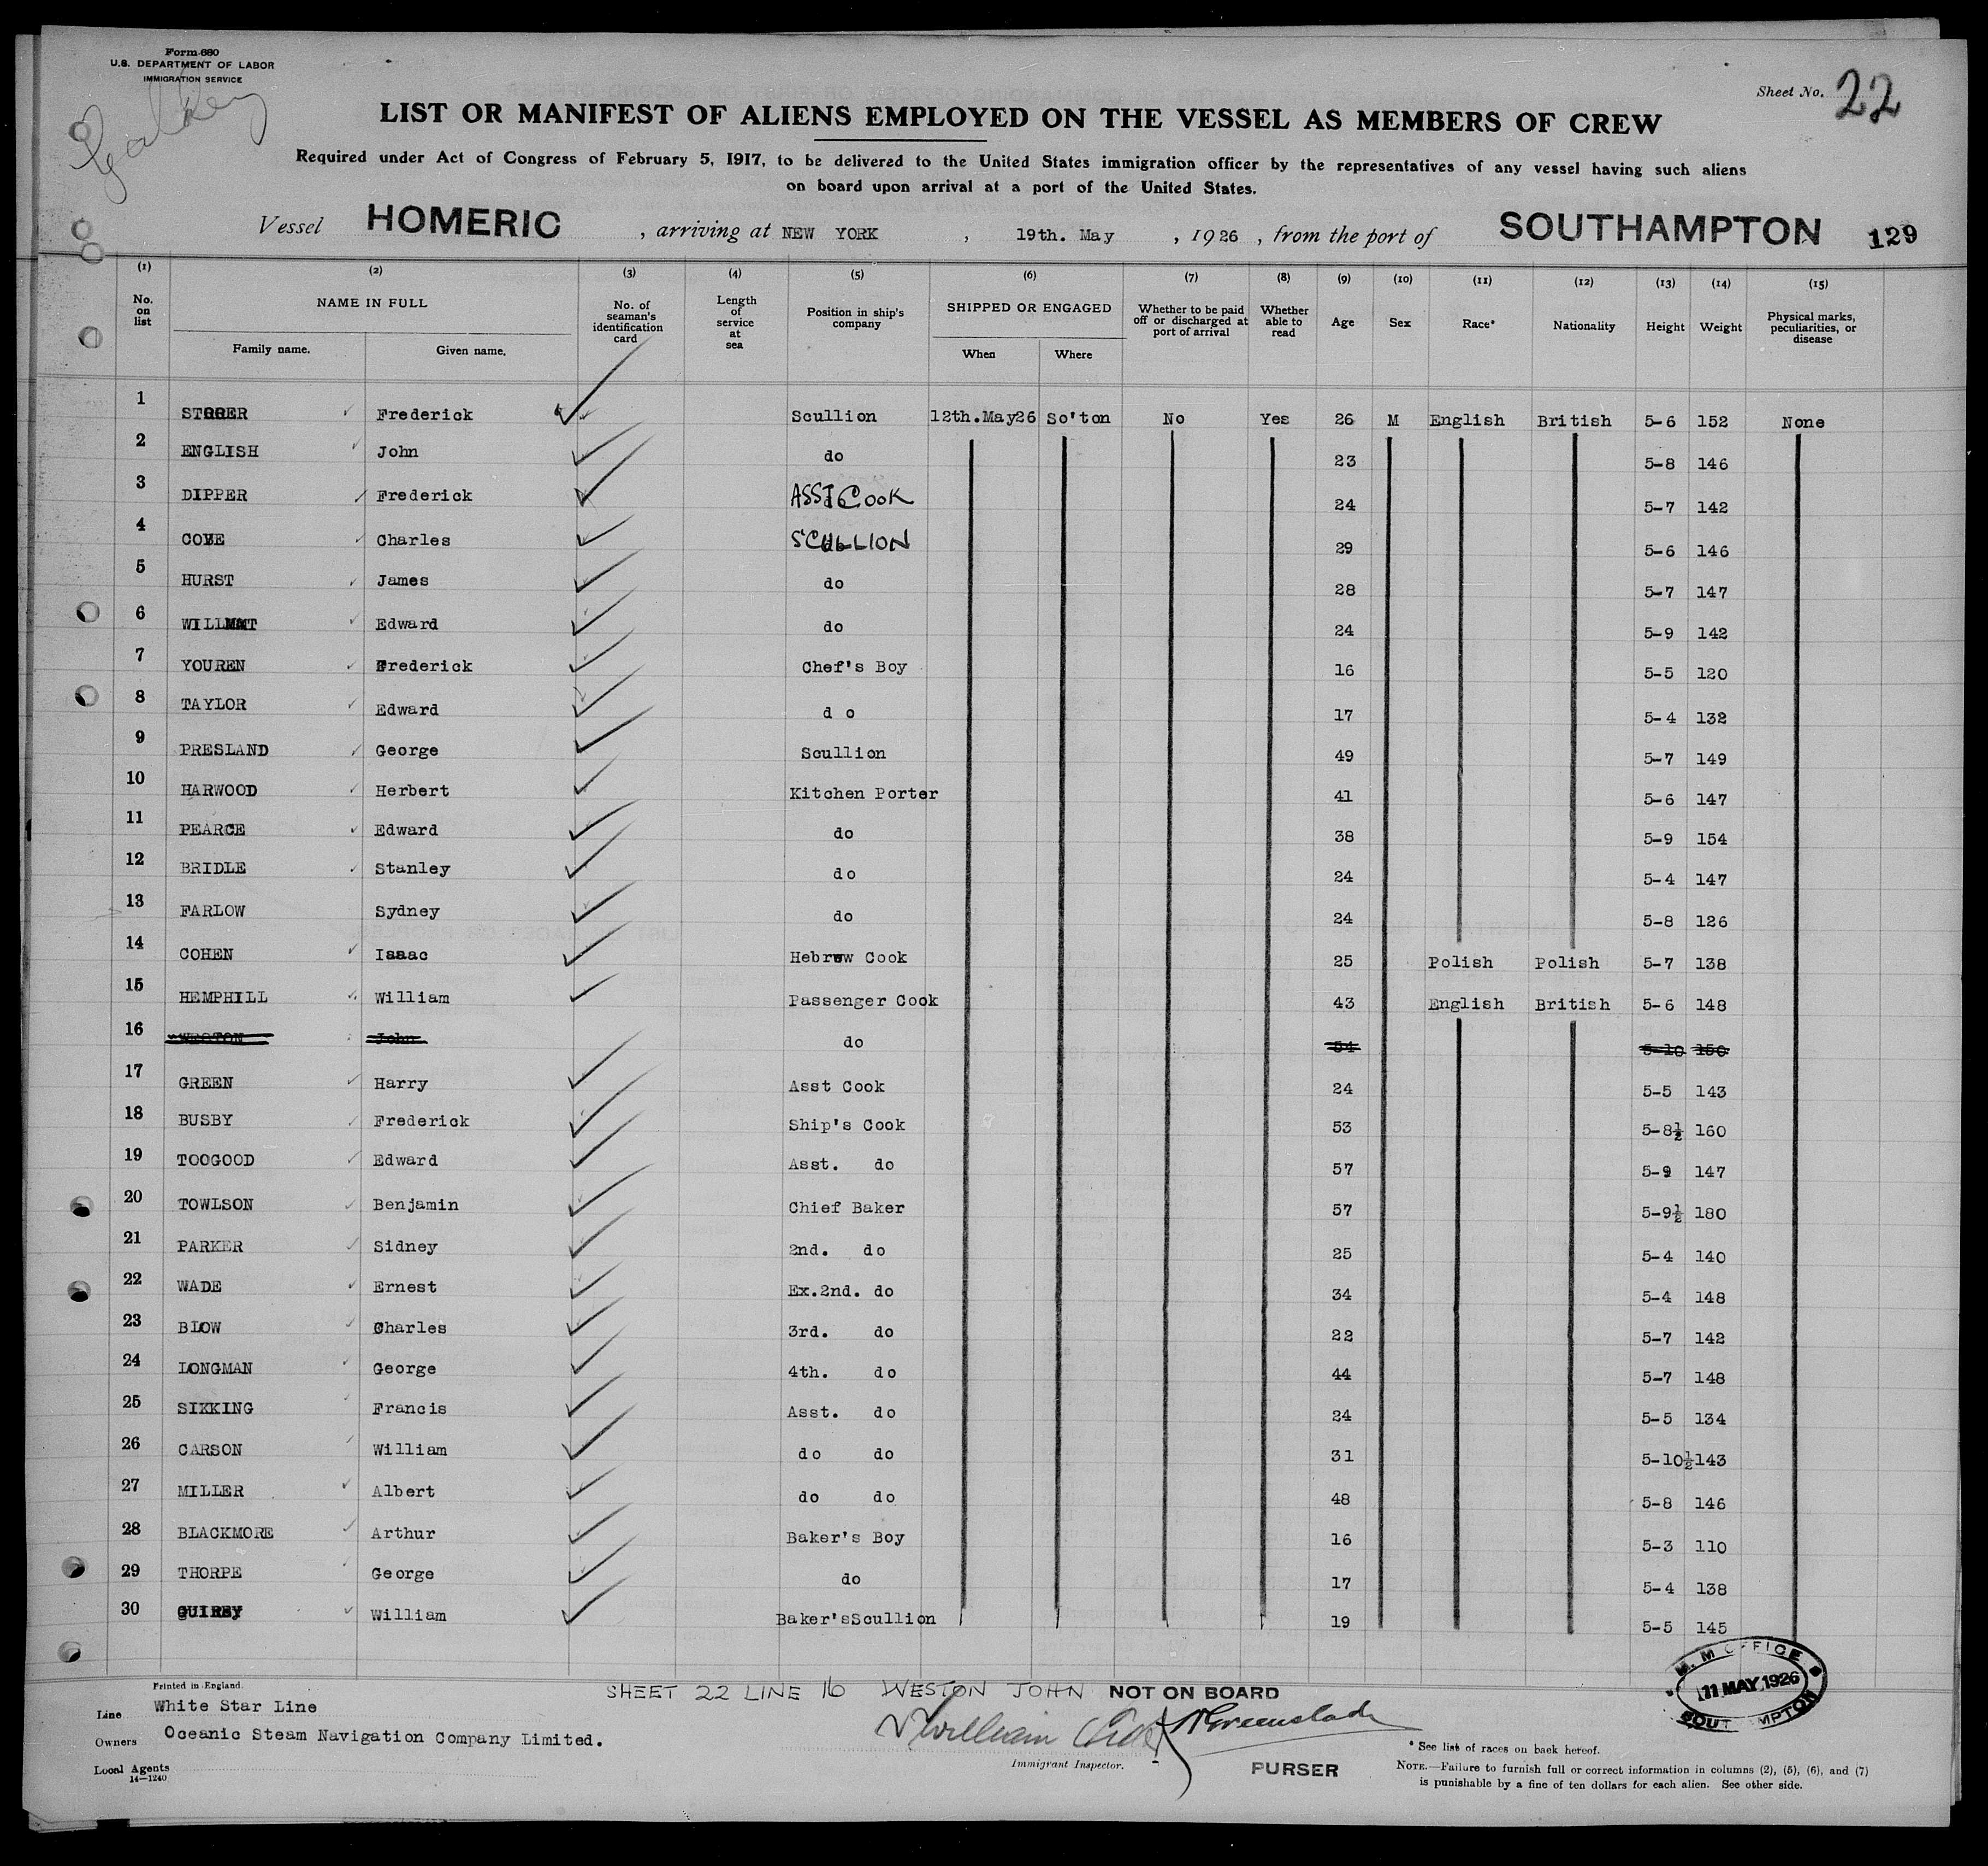 Form 680
U.S. DEPARTMENT OF LABOR
IMMIGRATION SERVICE
Sheet No. 22
LIST OR MANIFEST OF ALIENS EMPLOYED ON THE VESSEL AS MEMBERS OF CREW
Required under Act of Congress of February 5, 1917, to be delivered to the United States immigration officer by the representatives of any vessel having such aliens
on board upon arrival at a port of the United States.
Vessel HOMERIC, arriving at NEW YORK, 19th. May, 1926, from the port of SOUTHAMPTON 129
(1) (2) (3) (4) (5) (6) (7) (8) (9) (10) (11) (12) (13) (14) (15)
No. on list NAME IN FULL Family name. Given name. No. of seaman's identification card Length of service at sea Position in ship's company SHIPPED OR ENGAGED When Where Whether to be paid off or discharged at port of arrival Whether able to read Age Sex Race* Nationality Height Weight Physical marks, peculiarities, or disease
1 Frederick Scullion 12th.May26 So'ton No Yes 26 M English British 5-6 152 None
2 ENGLISH John do 23 5-8 146
3 DIPPER Frederick ASST COOK 24 5-7 142
4 COVE Charles SCULLION 29 5-6 146
5 HURST James do 28 5-7 147
6 Edward do 24 5-9 142
7 YOUREN Frederick Chef's Boy 16 5-5 120
8 TAYLOR Edward d o 17 5-4 132
9 PRESLAND George Scullion 49 5-7 149
10 HARWOOD Herbert Kitchen Porter 41 5-6 147
11 PEARCE Edward do 38 5-9 154
12 BRIDLE Stanley do 24 5-4 147
13 FARLOW Sydney do 24 5-8 126
14 COHEN Isaac Hebrew Cook 25 Polish Polish 5-7 138
15 HEMPHILL William Passenger Cook 43 English British 5-6 148
16 WESTON John do 54 5-10 150
17 GREEN Harry Asst Cook 24 5-5 143
18 BUSBY Frederick Ship's Cook 53 5-8½ 160
19 TOOGOOD Edward Asst. do 57 5-9 147
20 TOWLSON Benjamin Chief Baker 57 5-9½ 180
21 PARKER Sidney 2nd. do 25 5-4 140
22 WADE Ernest Ex.2nd. do 34 5-4 148
23 BLOW Charles 3rd. do 22 5-7 142
24 LONGMAN George 4th. do 44 5-7 148
25 SIKKING Francis Asst. do 24 5-5 134
26 CARSON William do do 31 5-10½ 143
27 MILLER Albert do do 48 5-8 146
28 BLACKMORE Arthur Baker's Boy 16 5-3 110
29 THORPE George do 17 5-4 138
30 William Baker'sScullion 19 5-5 145
SHEET 22 LINE 16 WESTON JOHN NOT ON BOARD
Printed in England.
Line White Star Line
Owners Oceanic Steam Navigation Company Limited.
Local Agents
14—1240
Greenslade
Immigrant Inspector. PURSER
M.M OFFICE
11 MAY 1926
* See list of races on back hereof.
NOTE.—Failure to furnish full or correct information in columns (2), (5), (6), and (7)
is punishable by a fine of ten dollars for each alien. See other side.